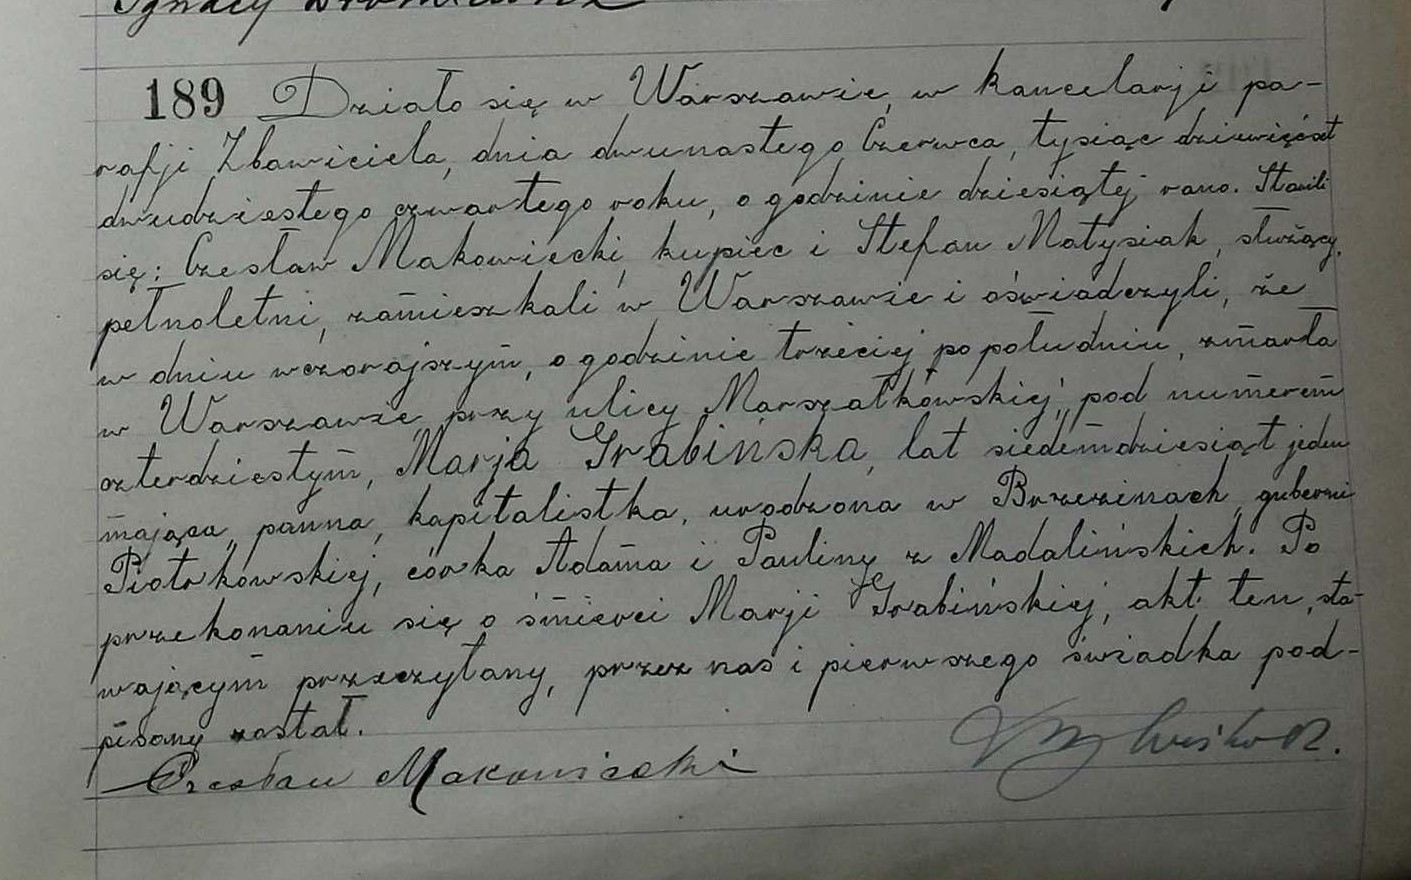 Ignacy
189 Działo się w Warszawie, w kancelarji pa-
rafji Zbawiciela, dnia dwunastego Czerwca, tysiąc dziewięćset
dwudziestego czwartego roku, o godzinie dziesiątej rano. Stawili
się: Czesław Makowiecki, kupiec i Stefan Matysiak, służący,
pełnoletni, zamieszkali w Warszawie i oświadczyli, że
w dniu wczorajszym, o godzinie trzeciej po południu, zmarła
w Warszawie, przy ulicy Marszałkowskiej, pod numerem
czterdziestym, Marja Grabińska, lat siedemdziesiąt jeden
mająca, panna, kapitalistka, urodzona w Brzezinach, guberni
Piotrkowskiej, córka Adama i Pauliny z Madalińskich. Po
przekonaniu się o śmierci Marji Grabińskiej, akt ten, sta-
wającym przeczytany, przez nas i pierwszego świadka pod-
pisany został.
Czesław Makowiecki